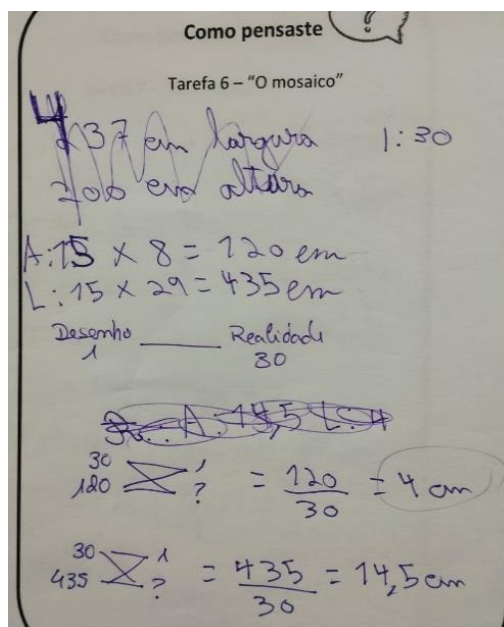 Como pensaste ?
Tarefa 6 – “O mosaico”
4
237 cm largura 1:30
200 cm altura
A: 15 × 8 = 120 cm
L: 15 × 29 = 435 cm
Desenho ___ Realidade
1 30
R.: A: 14,5 L: 4
30 1
120 ? = 120/30 = 4 cm
30 1
435 ? = 435/30 = 14,5 cm